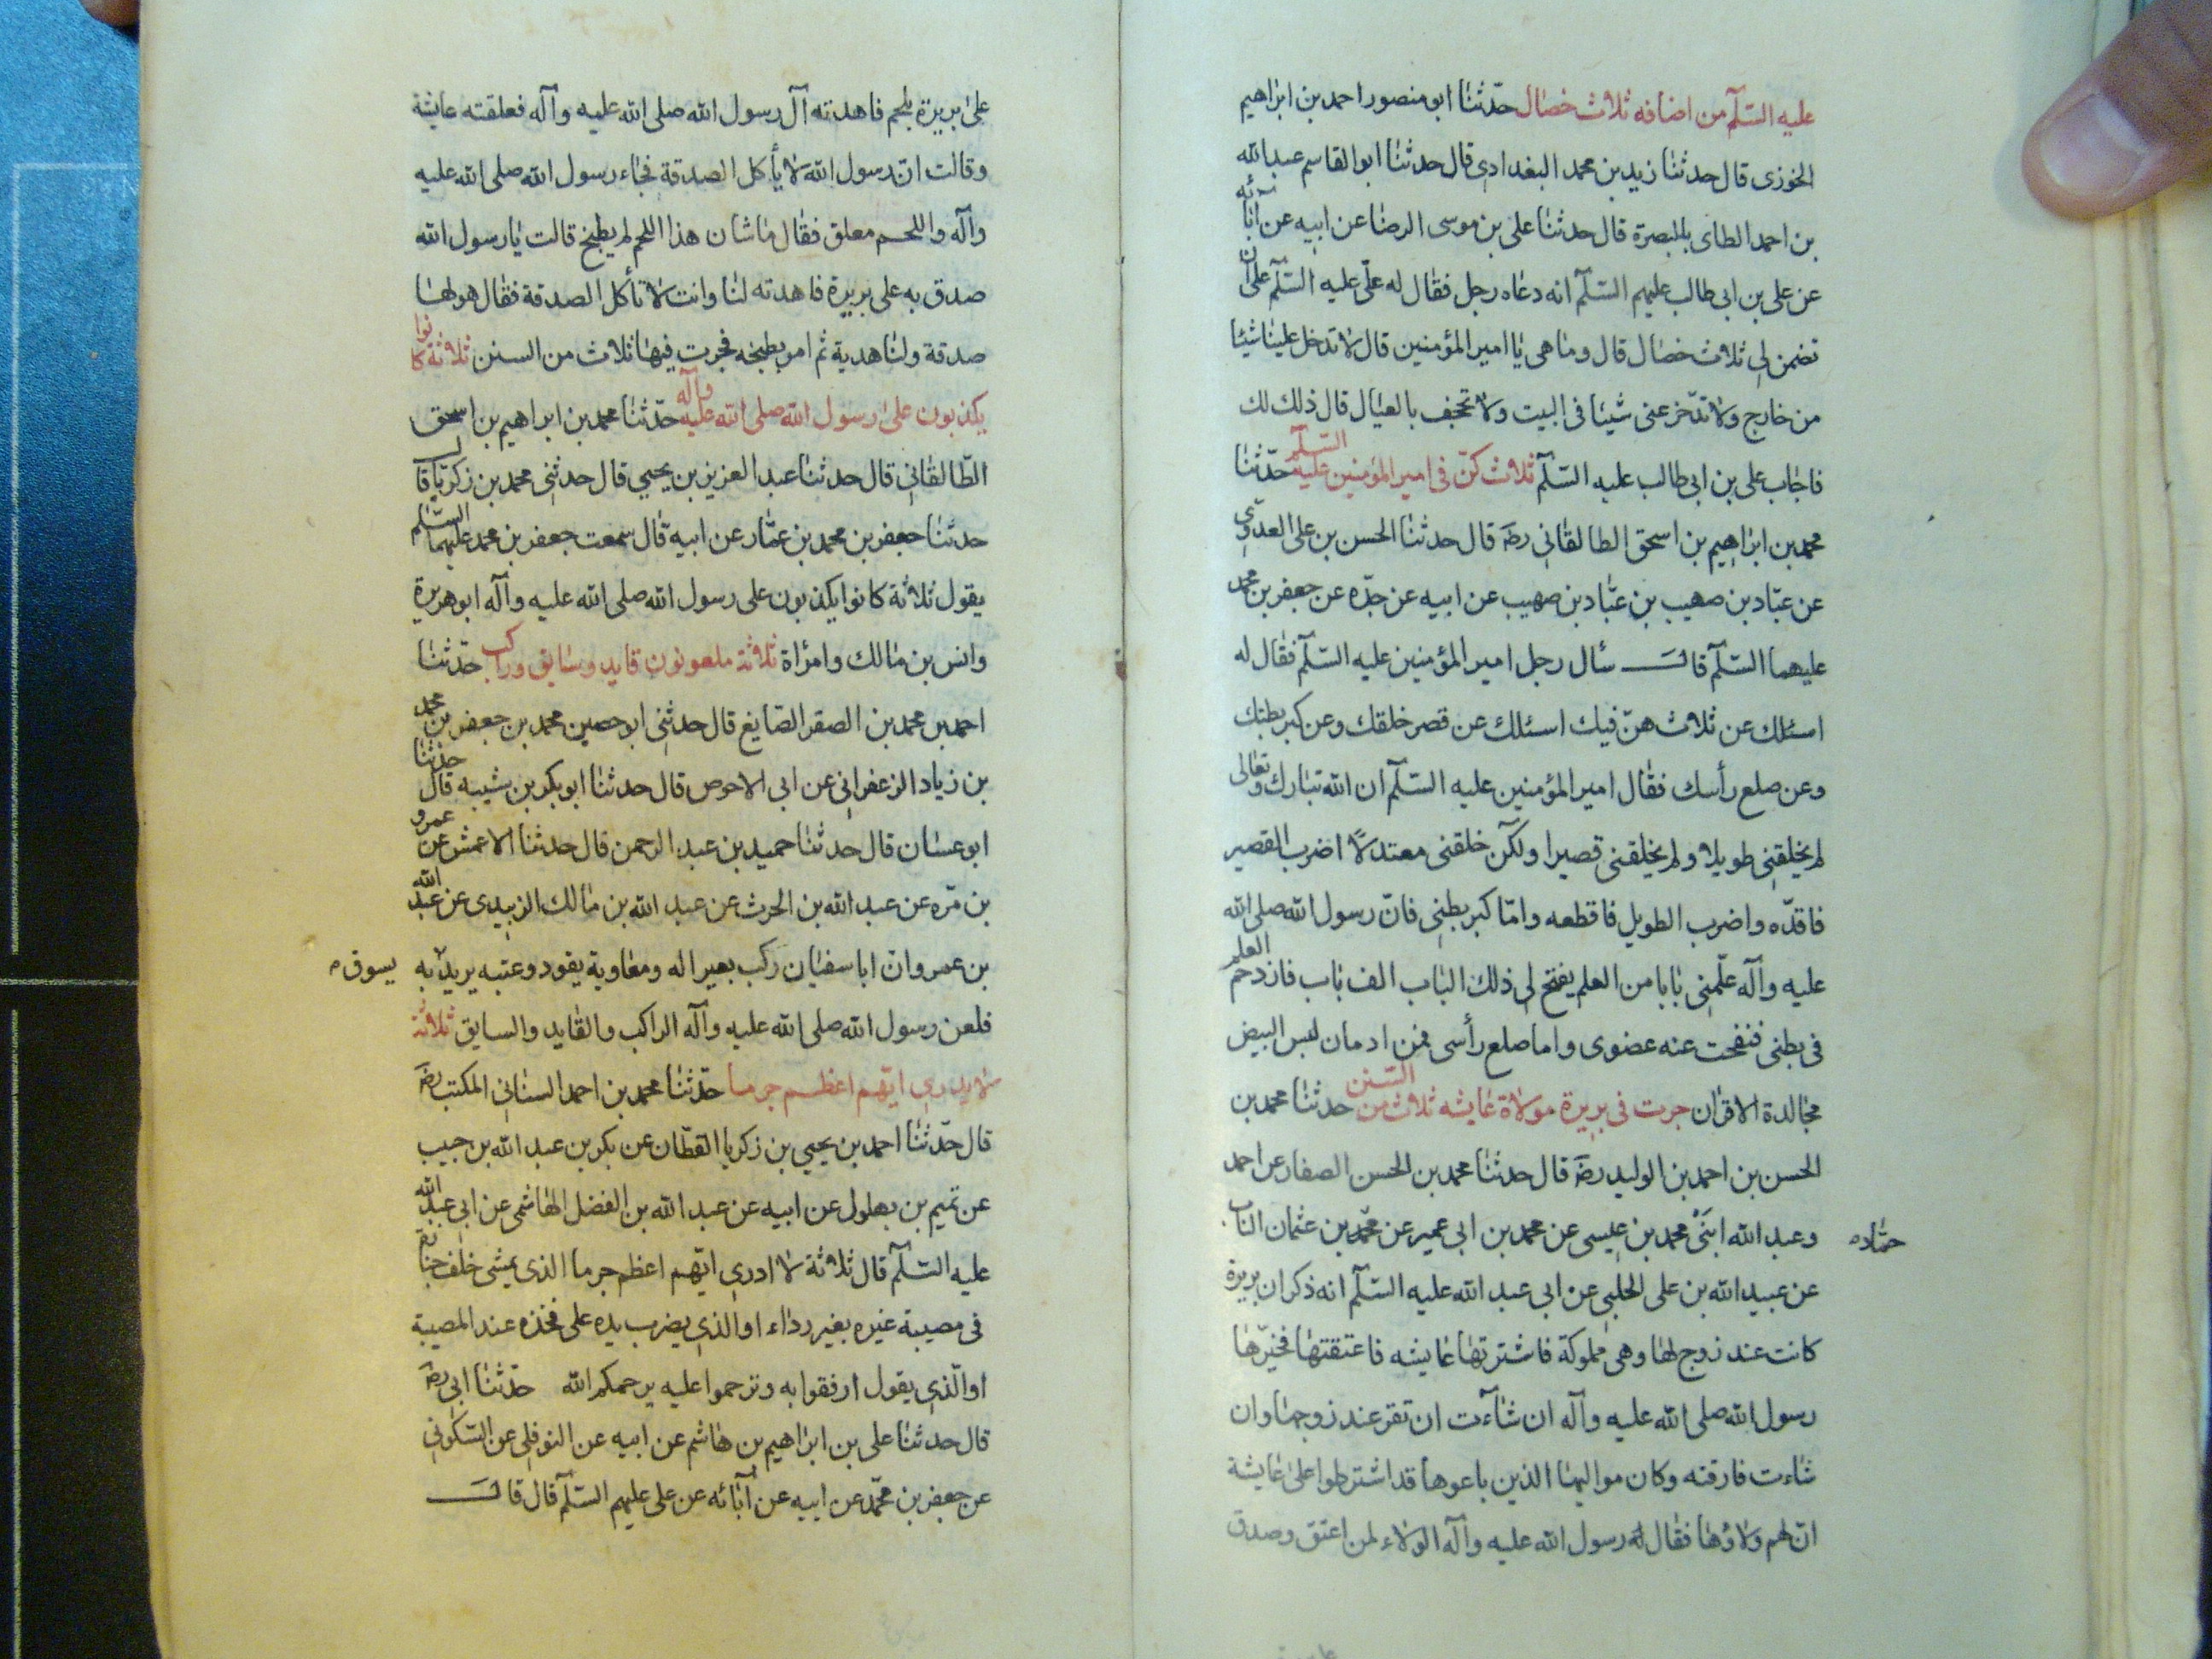 عليه السّلم من اضافه ثلاث خصال حدّثنا ابو منصور احمد بن ابراهيم
الخوزى قال حدثنا زيد بن محمد البغدادى قال حدثنا ابو القاسم عبد الله
بن احمد الطاى بالبصرة قال حدثنا على بن موسى الرضا عن ابيه عن ابائه
عن على بن ابى طالب عليهم السّلم انه دعاه رجل فقال له علّى عليه السّلم على ان
تضمن لى ثلاث خصال قال وما هى يا امير المؤمنين قال لا تدخل علينا شيئا
من خارج ولا تدّخر عنى شيئا فى البيت ولا تجحف بالعيال قال ذلك لك
فاجاب على بن ابى طالب عليه السّلم ثلاث كنّ فى امير المؤمنين عليه السّلم حدّثنا
محمد بن ابراهيم بن اسحق الطالقانى رضه قال حدثنا الحسن بن على العدوى
عن عبّاد بن صهيب بن عبّاد بن صهيب عن ابيه عن جدّه عن جعفر بن محمد
عليهما السّلم قال سأل رجل امير المؤمنين عليه السّلم فقال له
اسئلك عن ثلاث هنّ فيك اسئلك عن قصر خلقك وعن كبر بطنك
وعن صلع رأسك فقال امير المؤمنين عليه السّلم ان الله تبارك وتعالى
لم يخلقنى طويلا ولم يخلقنى قصيرا ولكن خلقنى معتدلاً اضرب القصير
فاقدّه واضرب الطويل فاقطعه وامّا كبر بطنى فانّ رسول الله صلى الله
عليه وآله علّمنى بابا من العلم يفتح لى ذلك الباب الف باب فازدحم العلم
فى بطنى فنفجت عنه عضوى واما صلع رأسى فمن ادمان لبس البيض
مجالدة الاقران جرت فى بريرة مولاة عايشه ثلاث من السّنن حدثنا محمد بن
الحسن بن احمد بن الوليد رضه قال حدثنا محمد بن الحسن الصفار عن احمد
وعبد الله ابنى محمد بن عيسى عن محمد بن ابى عمير عن محمّد بن عثمان الناب
حمّاد
عن عبيد الله بن على الحلبى عن ابى عبد الله عليه السّلم انه ذكر ان بريرة
كانت عند زوج لها وهى مملوكة فاشترتها عايشه فاعتقتها فخيّرها
رسول الله صلى الله عليه وآله ان شاءت ان تقر عند زوجها وان
شاءت فارقته وكان مواليها الذين باعوها قد اشترطوا على عايشة
انّ لهم ولاؤها فقال له رسول الله عليه وآله الولاء لمن اعتق وصدق
على بريرة بلحم فاهدته آل رسول الله صلى الله عليه وآله فعلقته عايشة
وقالت ان رسول الله لا يأكل الصدقة فجاء رسول الله صلى الله عليه
وآله واللحم معلق فقال ما شان هذا اللحم لم يطبخ قالت يا رسول الله
صدق به على بريرة فاهدته لنا وانت لا تأكل الصدقة فقال هو لها
صدقة ولنا هدية ثم امر بطبخه فجرت فيها ثلاث من السنن ثلاثة كانوا
يكذبون على رسول الله صلى الله عليه وآله حدّثنا محمد بن ابراهيم بن اسحق
الطّالقانى قال حدثنا عبد العزيز بن يحيى قال حدثنى محمد بن زكريّا قال
حدثنا جعفر بن محمد بن عمّار عن ابيه قال سمعت جعفر بن محمد عليهما السّلم
يقول ثلاثة كانوا يكذبون على رسول الله صلى الله عليه وآله ابو هريرة
وانس بن مالك وامرأة ثلاثة ملعونون قايد وسايق وراكب حدّثنا
احمد بن محمد بن الصقر الصّايغ قال حدثنى ابو حصين محمد بن جعفر بن محمد
بن زياد الزعفرانى عن ابى الاحوص قال حدثنا ابو بكر بن شيبه قال حدثنا
ابو غسان قال حدثنا حميد بن عبد الرحمن قال حدثنا الاعمش عن عمرو
بن مرّه عن عبد الله بن الحرث عن عبد الله بن مالك الزبيدى عن عبد الله
بن عمر وان ابا سفيان ركب بعيرا له ومعاوية يقود وعتبه يريد به
يسوق
فلعن رسول الله صلى الله عليه وآله الراكب والقايد والسايق ثلاثة
لا يدرى ايّهم اعظم جرما حدّثنا محمد بن احمد السنانى المكتب رضه
قال حدّثنا احمد بن يحيى بن زكريا القطّان عن بكر بن عبد الله بن حبيب
عن تميم بن بهلول عن ابيه عن عبد الله بن الفضل الهاشمى عن ابى عبد الله
عليه السّلم قال ثلاثة لا ادرى ايّهم اعظم جرما الذى يمشى خلف جنازة
فى مصيبة غيره بغير رداء او الذى يضرب يده على فخذه عند المصيبة
او الّذى يقول ارفقوا به وترحموا عليه يرحمكم الله حدّثنا ابى رضه
قال حدثنا على بن ابراهيم بن هاشم عن ابيه عن النوفلى عن السّكونى
عن جعفر بن محمّد عن ابيه عن آبائه عن على عليهم السّلم قال قال